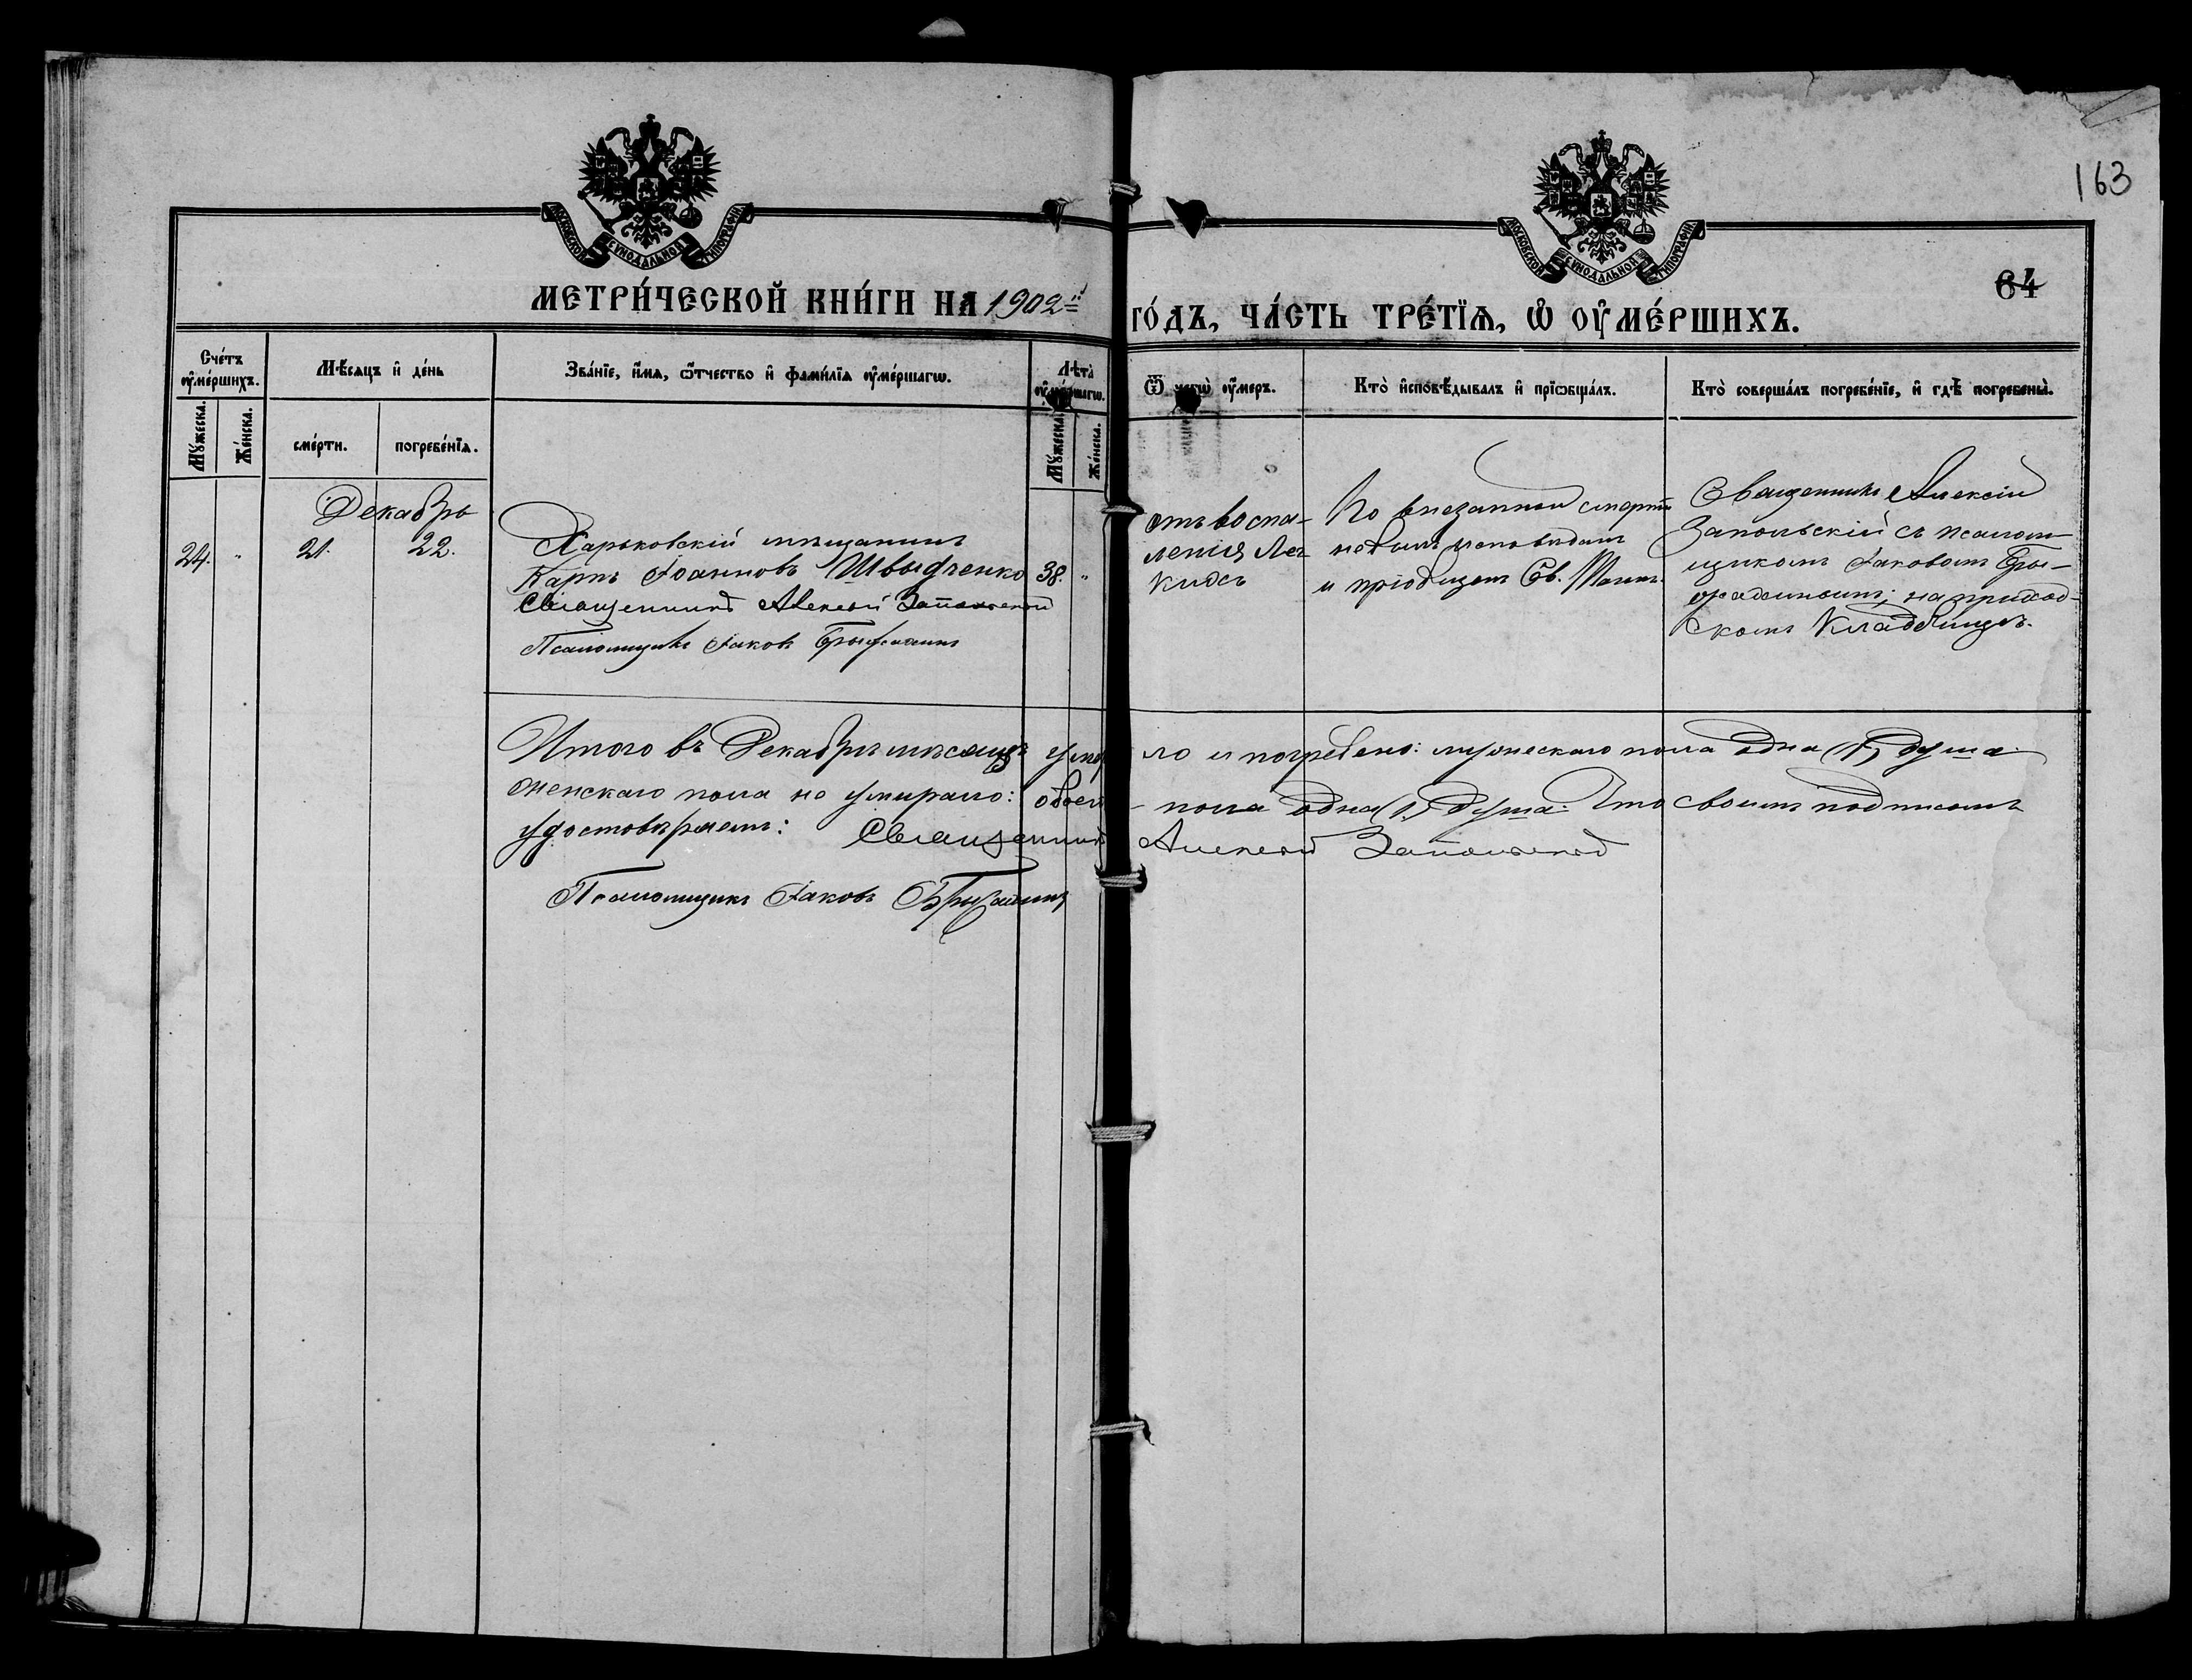 163
64
МОСКОВСКОЙ СѴНОДАЛЬНОЙ ТИПОГРАФІИ
МОСКОВСКОЙ СѴНОДАЛЬНОЙ ТИПОГРАФІИ
МЕТРИ́ЧЕСКОЙ КНИ́ГИ НА 1902й го́дъ, ЧА́СТЬ ТРЕ́ТЇѦ, Ѡ҆ ОУ҆МЕ́РШИХЪ.
Сче́тъ оу҆ме́ршихъ.
Мꙋ́жеска.
Же́нска.
Мѣ́сѧцъ и҆ де́нь
сме́рти.
погребе́нїѧ.
Зва́нїе, и҆́мѧ, ѻ҆́тчество и҆ фами́лїѧ оу҆ме́ршагѡ.
Лѣ́та оу҆ме́ршагѡ.
Мꙋ́жеска.
Же́нска.
Ѿ чегѡ̀ оу҆́меръ.
Кто̀ и҆сповѣ́дывалъ и҆ прїѡбща́лъ.
Кто̀ соверша́лъ погребе́нїе, и҆ гдѣ̀ погребены̀.
Декабрь
24. " 21. 22.
Харьковскій мѣщанинъ
Карпъ Іоанновъ Швыдченко 38. "
Священникъ Алексѣй Запольскій
Псаломщикъ Іаковъ
отъ воспа-
ленія Лег
кихъ
По внезапной смерти
не былъ исповѣданъ
и пріобщенъ Св. Таинъ.
Священникъ Алексій
Запольскій съ псалом-
щикомъ Іаковомъ
на приход-
скомъ Кладбищѣ.
Итого въ Декабрѣ мѣсяцѣ умерло и погребено: мужескаго пола одна (1) душа
женскаго пола не умирало: обоего пола одна (1) душа. Что своимъ подписомъ
удостовѣряемъ: Священникъ Алексѣй Запольскій
Псаломщикъ Іаковъ